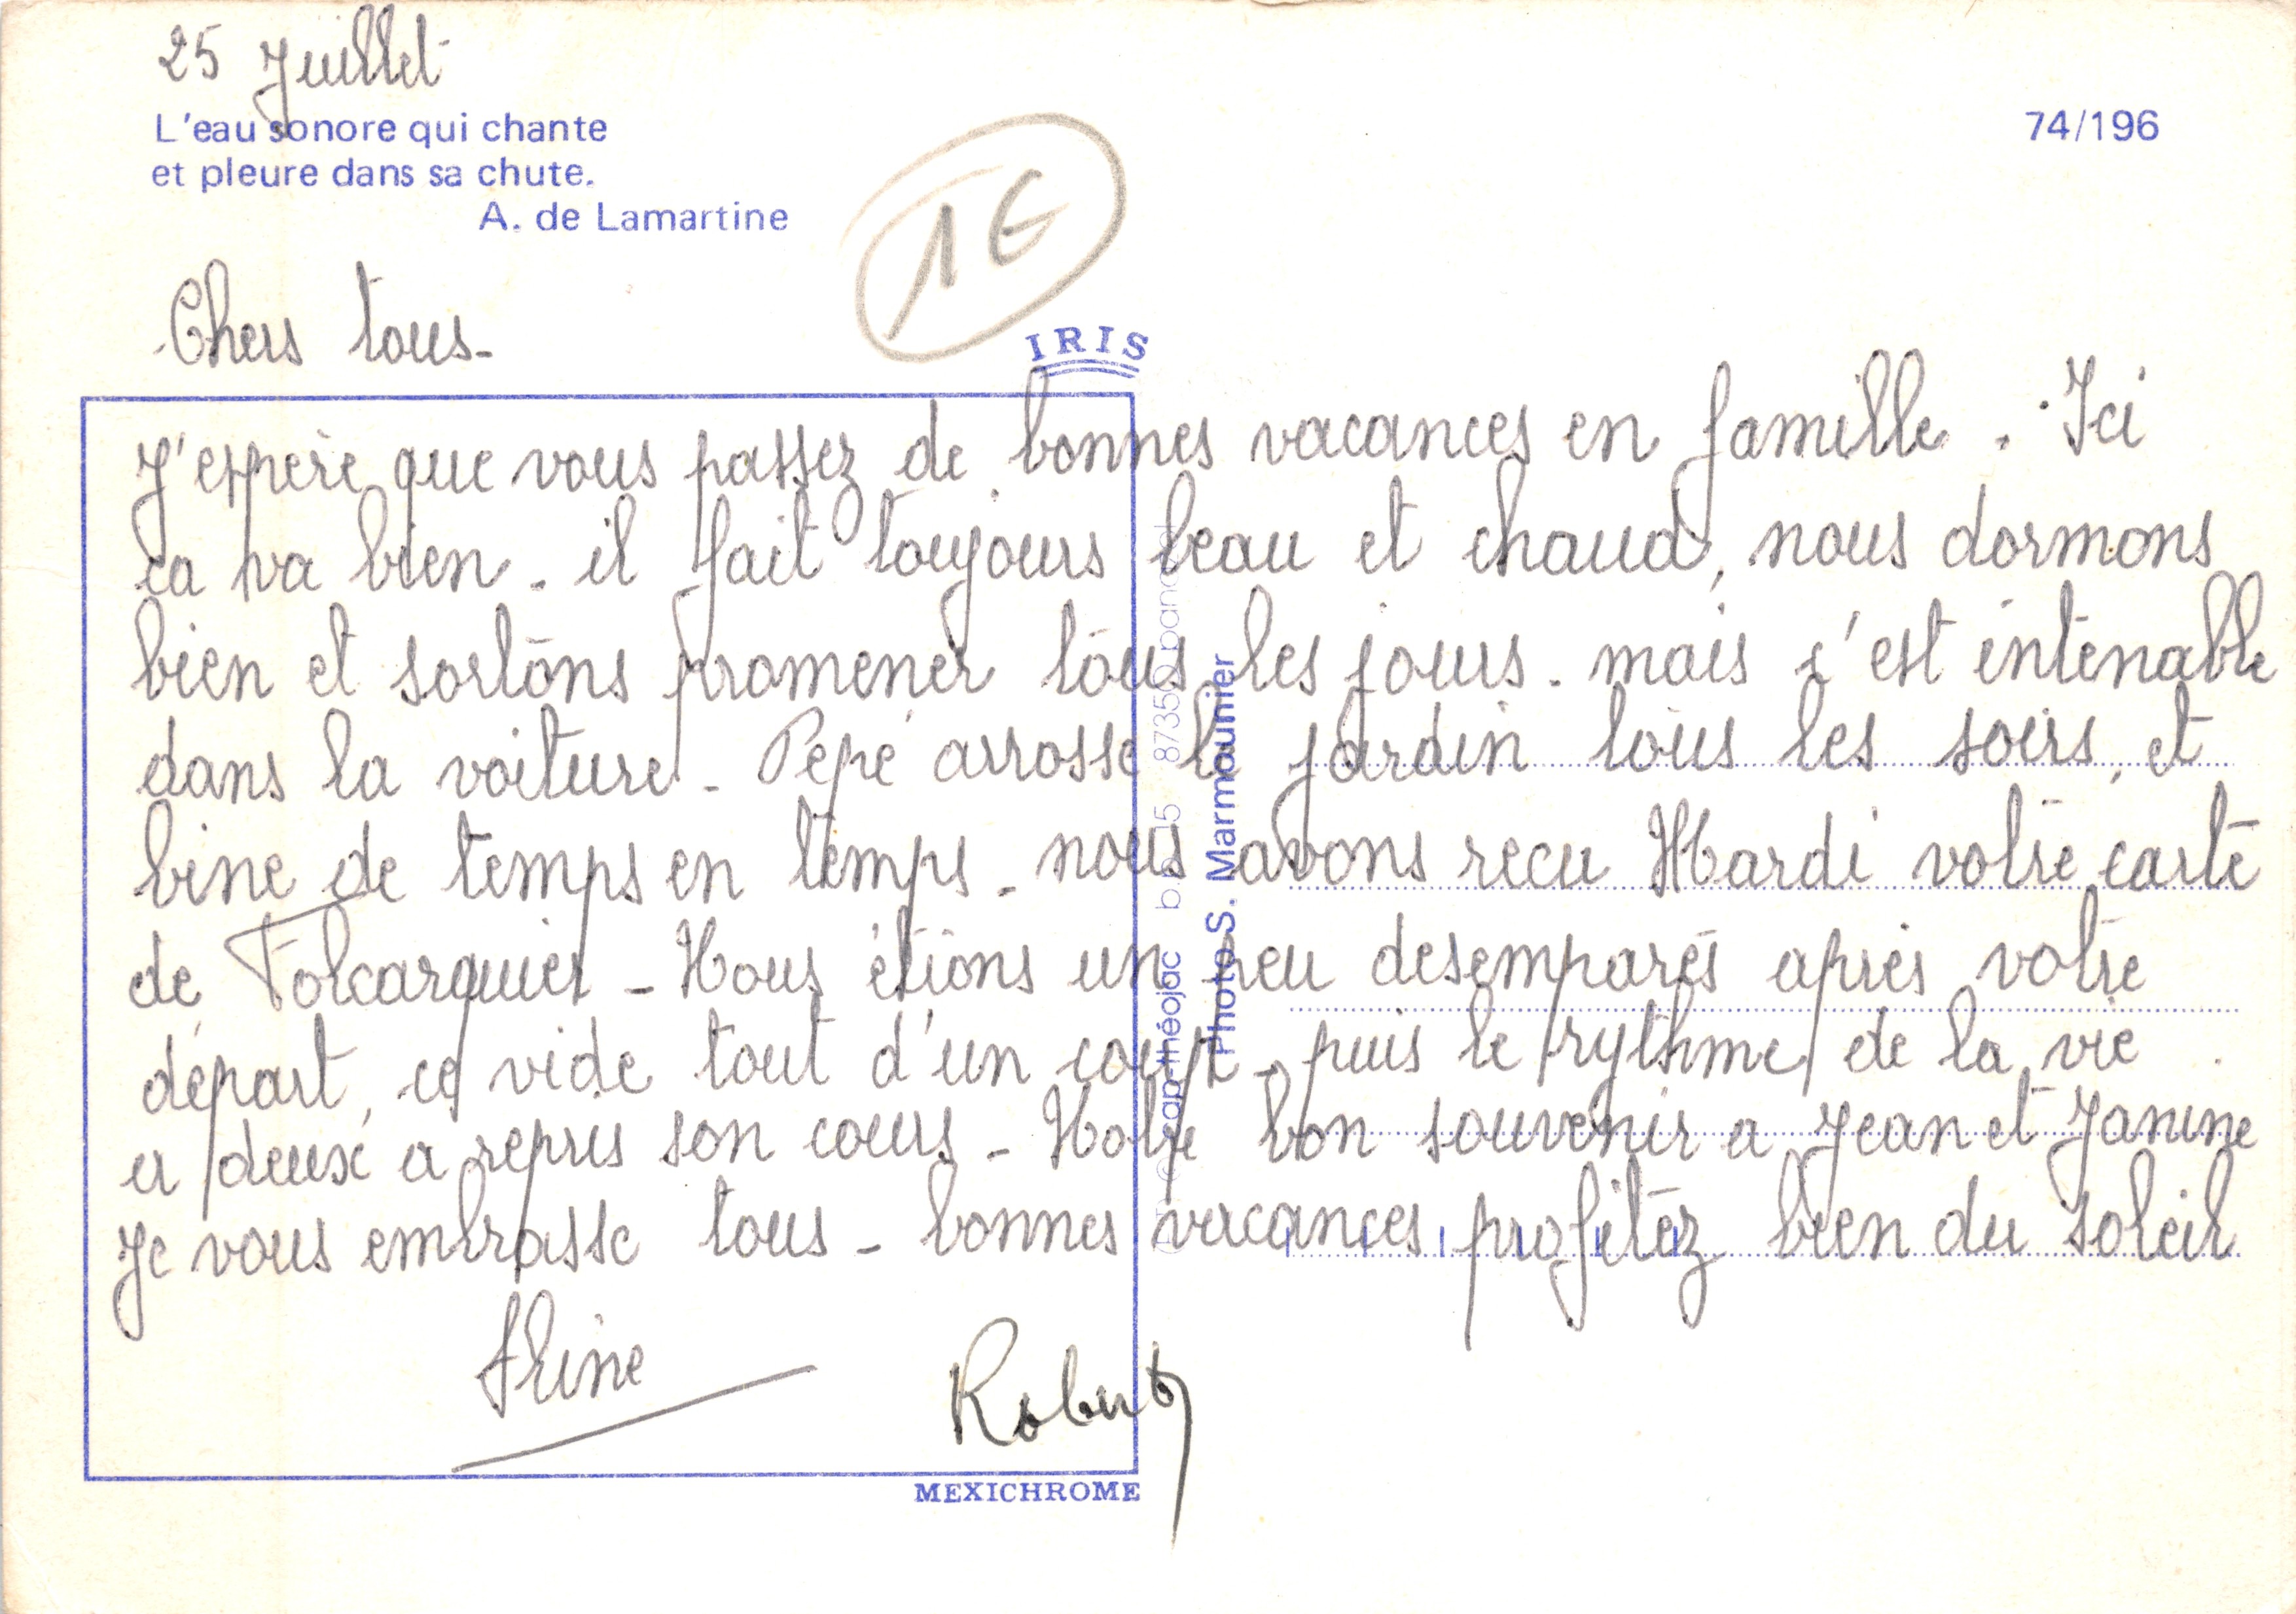 25 Juillet
L'eau sonore qui chante
et pleure dans sa chute.
A. de Lamartine
74/196
1€
Chers tous -
IRIS
J'espère que vous passez de bonnes vacances en famille. Ici
ca va bien - il fait toujours beau et chaud, nous dormons
bien et sortons promener tous les jours - mais c'est intenable
dans la voiture - Pépé arrosse le jardin tous les soirs, et
bine de temps en temps - nous avons recu Mardi votre carte
de Folcarquier - Nous étions un peu desemparés après votre
départ, ce vide tout d'un coup - puis le rythme de la vie
a deux a repris son cours - Notre bon souvenir a Jean et Janine
Je vous embrasse tous - bonnes vacances profitez bien du soleil
Robert
MEXICHROME
cap-théojac 87350 pana
Photo S. Marmounier